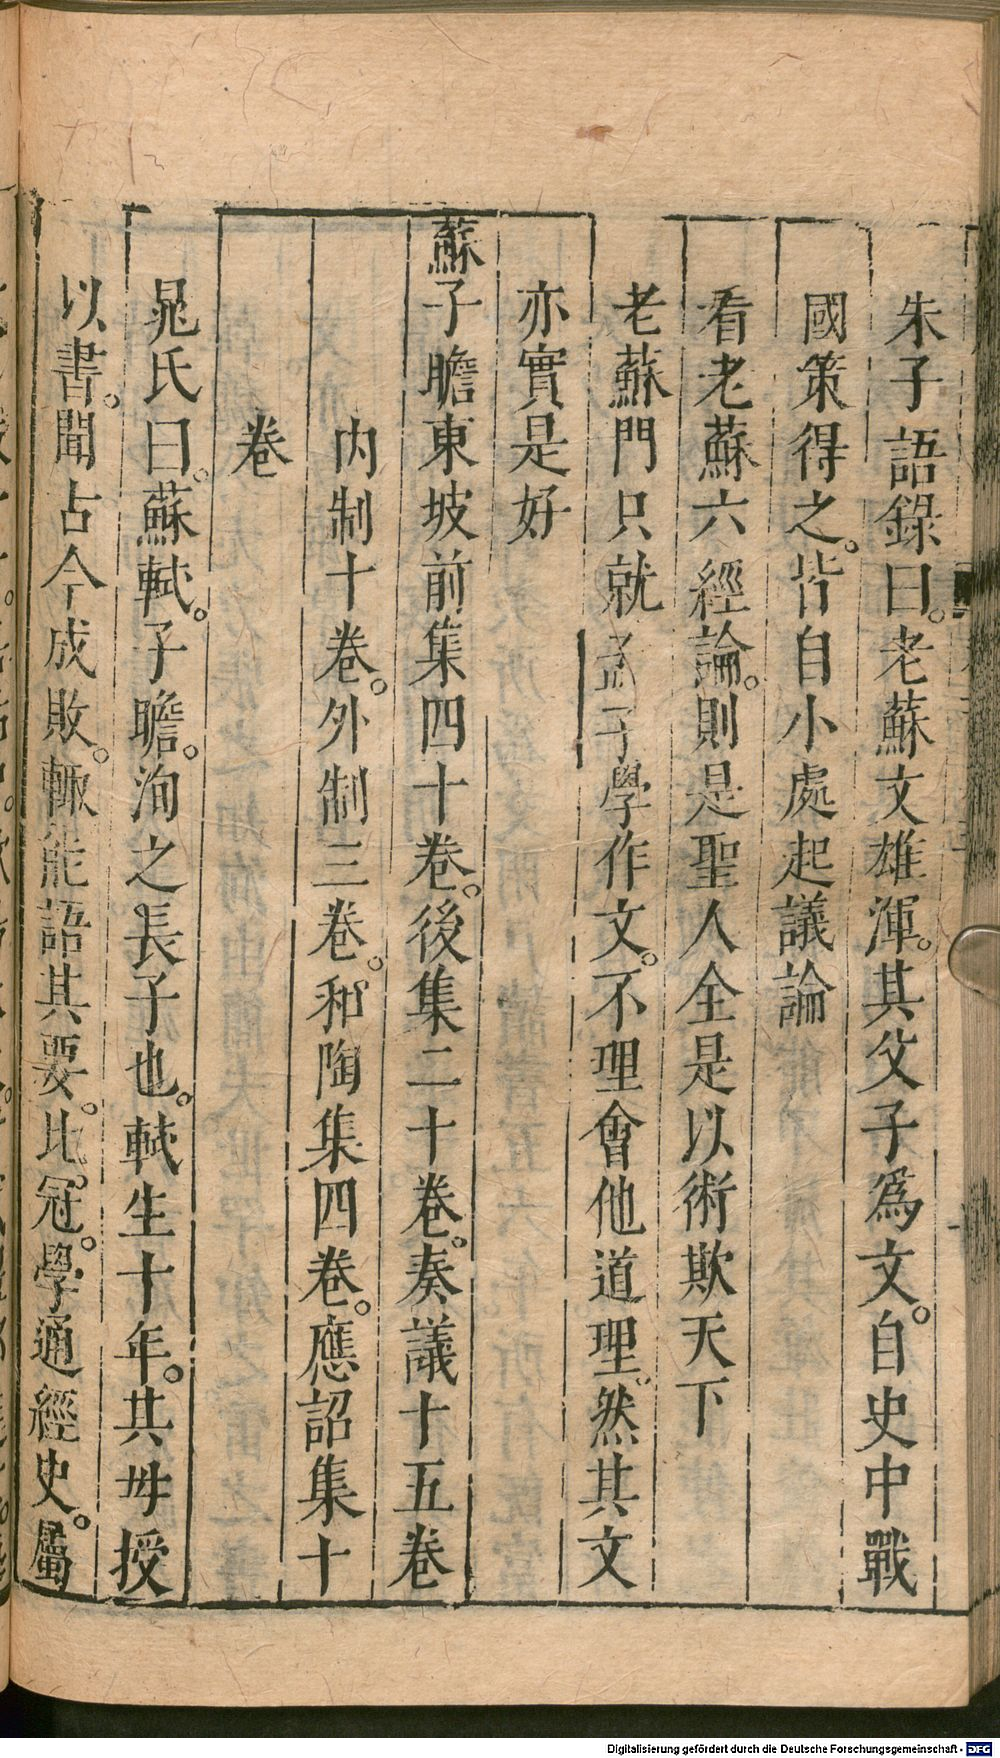 朱子語錄曰。老蘇文雄渾。其父子爲文。自史中戰
國策得之。皆自小處起議論
看老蘇六經論。則是聖人全是以術欺天下
老蘇門只就孟子學作文。不理會他道理。然其文
亦實是好
蘇子瞻東坡前集四十卷。後集二十卷。奏議十五卷
內制十卷。外制三卷。和陶集四卷。應詔集十
卷
晁氏曰。蘇軾。子瞻。洵之長子也。軾生十年。其母授
以書。聞古今成敗。輒能語其要。比冠。學通經史。屬
Digitalisierung gefördert durch die Deutsche Forschungsgemeinschaft - DFG